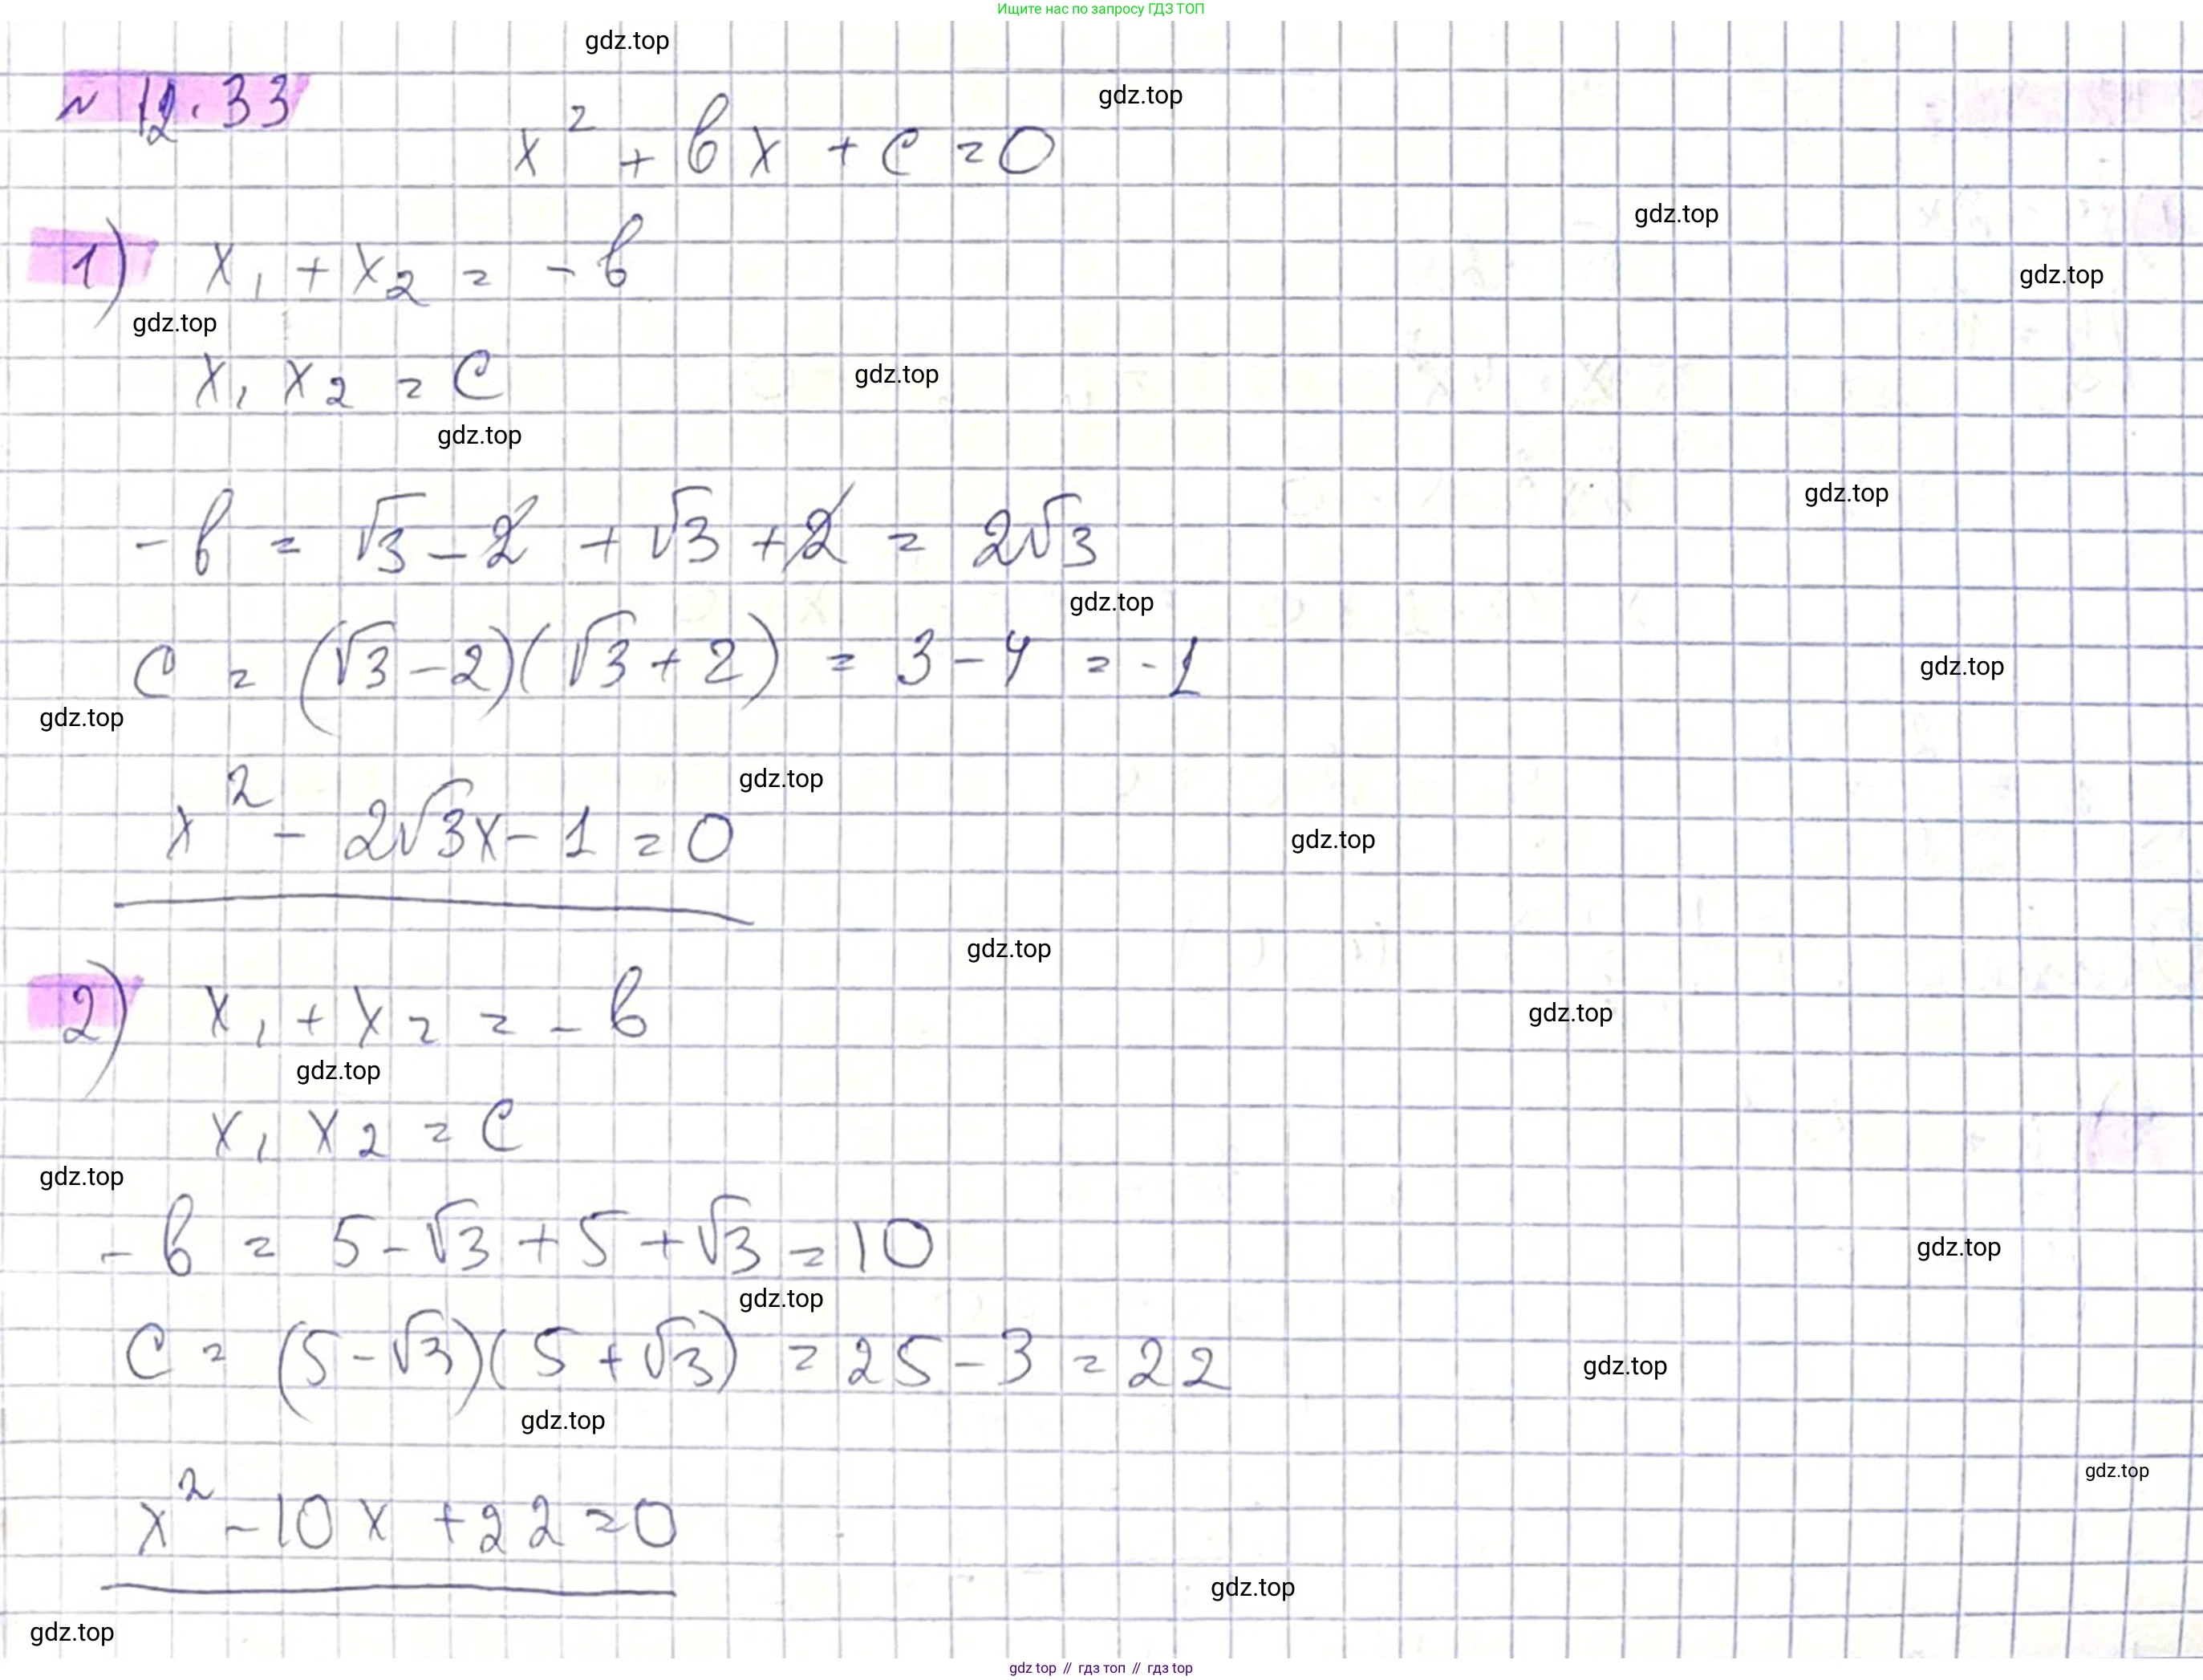 Ищите нас по запросу ГДЗ ТОП
gdz.top
№ 12.33
gdz.top
x² + bx + c = 0
gdz.top
1) x₁ + x₂ = -b
gdz.top
gdz.top
x₁ x₂ = c
gdz.top
gdz.top
gdz.top
-b = √3 - 2 + √3 + 2 = 2√3
gdz.top
c = (√3 - 2)(√3 + 2) = 3 - 4 = -1
gdz.top
gdz.top
gdz.top
x² - 2√3x - 1 = 0
gdz.top
gdz.top
2) x₁ + x₂ = -b
gdz.top
gdz.top
x₁ x₂ = c
gdz.top
-b = 5 - √3 + 5 + √3 = 10
gdz.top
gdz.top
c = (5 - √3)(5 + √3) = 25 - 3 = 22
gdz.top
gdz.top
gdz.top
x² - 10x + 22 = 0
gdz.top
gdz.top
gdz top // гдз топ // гдз top